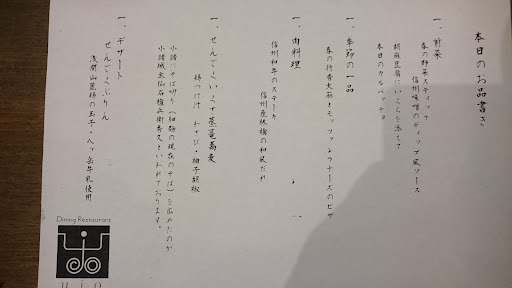 本日のお品書き
一、前菜
春の野菜スティック
信州味噌のディップ風ソース
胡麻豆腐にいくらを添えて
本日のカルパッチョ
一、季節の一品
春の行者大蒜とモッツァレラチーズのピザ
一、肉料理
信州和牛のステーキ
信州産林檎の和風だれ
一、せんごくいくさ蒸篭蕎麦
鶏つけ汁 わさび・柚子胡椒
小諸にそば切り(細麺の現在のそば)を広めたのが
小諸城主仙石権兵衛秀久といわれております。
一、デザート
せんごくぷりん
浅間山麓鶏の玉子・八ヶ岳牛乳使用
Dining Restaurant